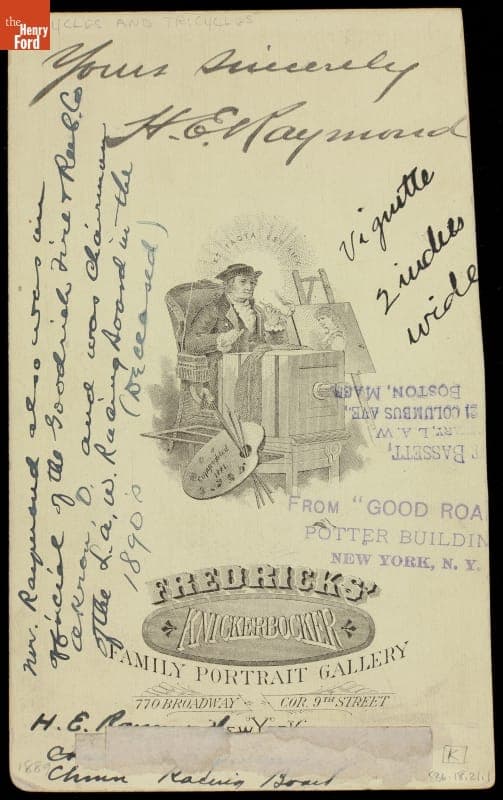 the
Henry
Ford
CYCLES AND TRICYCLES
Yours Sincerely
H. E. Raymond
Vignette
2 inches
wide
Mr. Raymond also was an
official of the Goodrich Tire & Rub. Co
Akron, O. and was Chairman
of the L.A.W. Racing Board in the
1890's (Deceased)
Copyrighted
BASSETT,
L. A. W
21 COLUMBUS AVE.,
BOSTON, MASS
FROM "GOOD ROA
POTTER BUILDIN
NEW YORK, N. Y.
FREDRICKS'
KNICKERBOCKER
FAMILY PORTRAIT GALLERY
770 BROADWAY COR. 9TH STREET
NEW YORK
H. E. Raymond
Chmn Racing Board
K